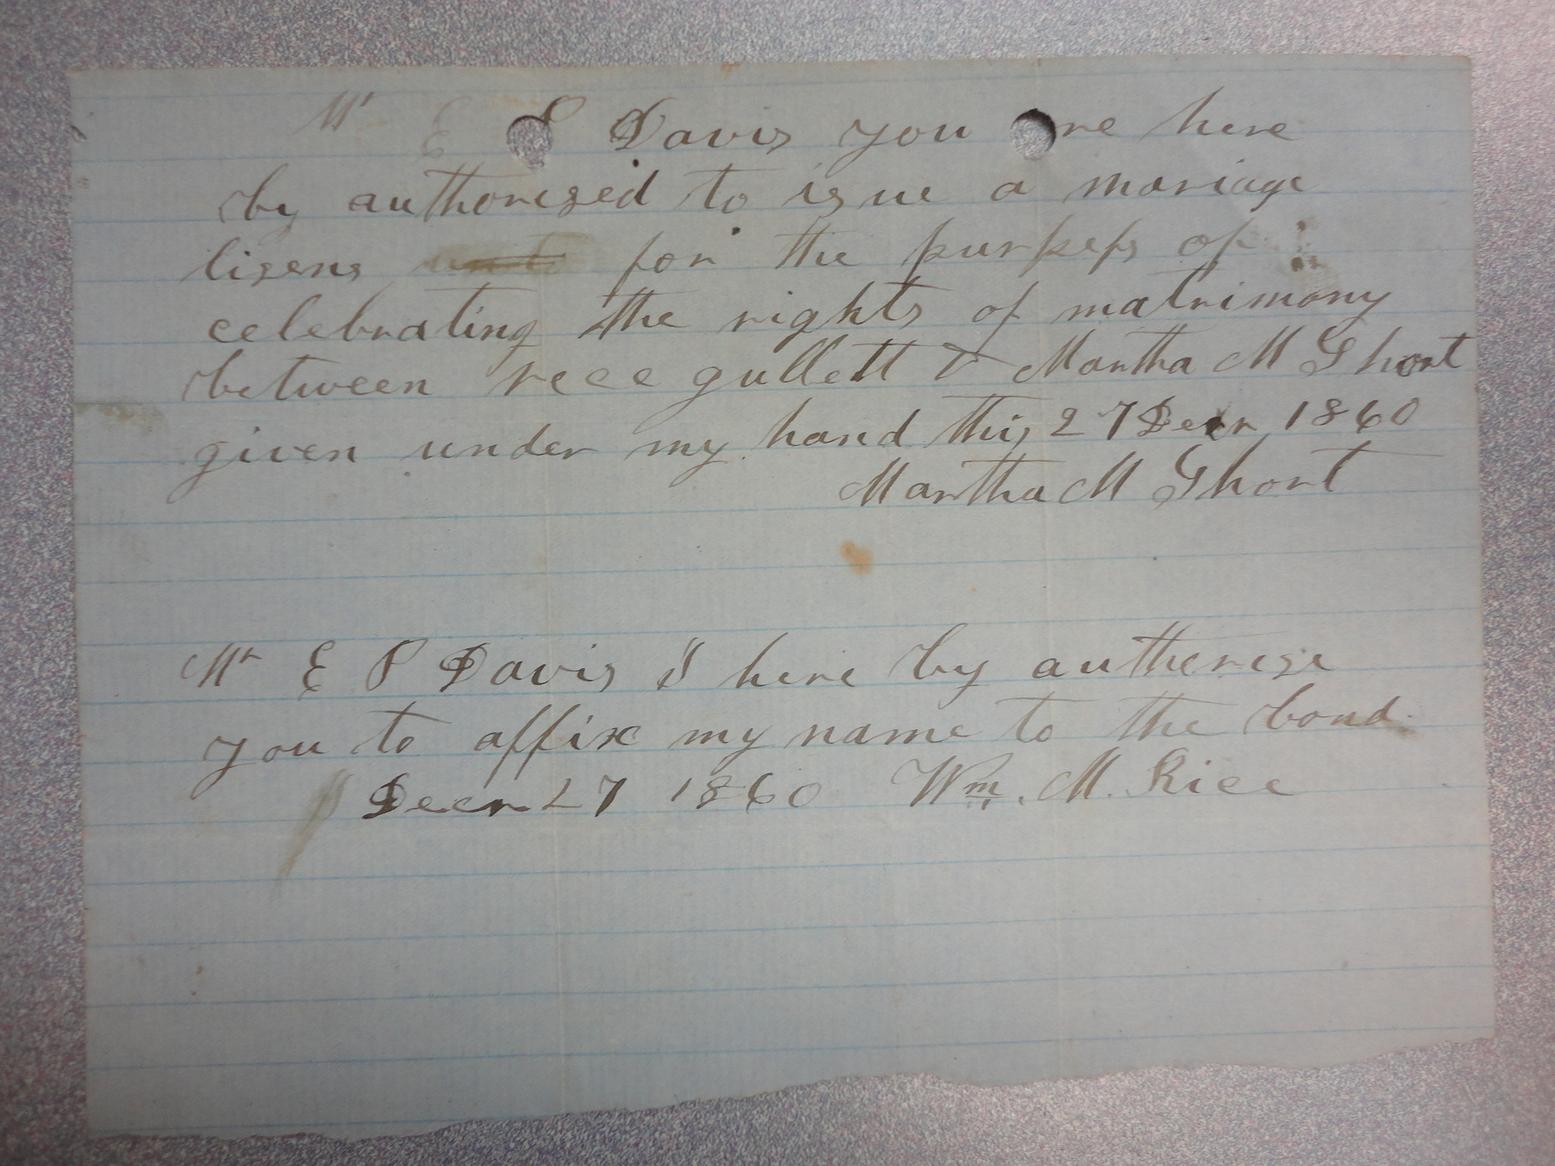 Mr E P Davis you are here
by authorized to isue a mariage
lisens for the purpess of
celebrating the rights of matrimony
between rece gullett & Martha M Short
given under my hand this 27 Decr 1860
Martha M Short
Mr E P Davis I here by autherise
you to affix my name to the bond
Decr 27 1860 Wm. M. Rice